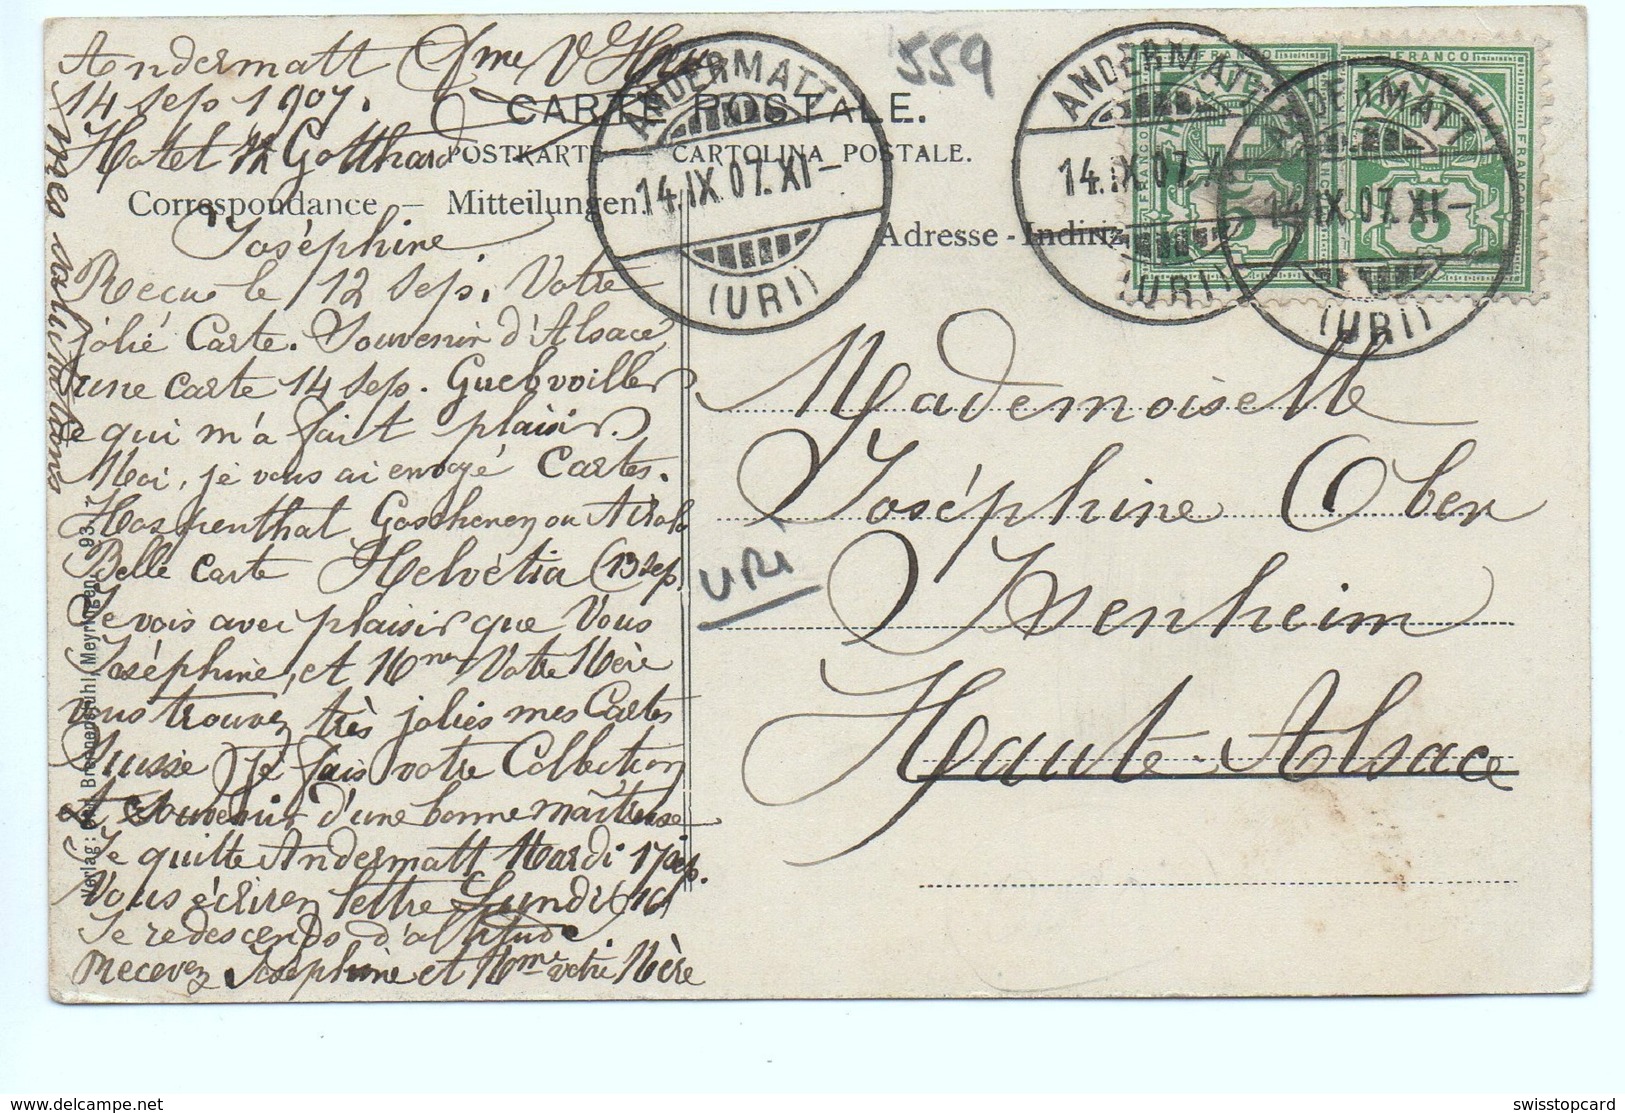 Andermatt
14 Sep 1907.
Hotel Gotthard
559
CARTE POSTALE.
POSTKARTE — CARTOLINA POSTALE.
Correspondance — Mitteilungen.
Adresse - Indiriz
ANDERMATT
14.IX.07.XI–
(URI)
ANDERMATT
14.IX.07.XI
(URI)
ANDERMATT
14.IX.07.XI–
(URI)
FRANCO
FRANCO
5
5
Joséphine
Reçue le 12 Sep. Votre
jolie Carte. Souvenir d'Alsace
une carte 14 Sep. Guebvoiller
ce qui m'a fait plaisir.
Moi, je vous ai envoyé Cartes.
Hospenthal Goschenen ou Airolo
Belle Carte Helvétia (13 Sep.
Je vois avec plaisir que Vous
Joséphine, et Mme Votre Mère
vous trouvez très jolies mes Cartes
Suisse Je fais votre Collection
et Souvenir d'une bonne maîtresse
Je quitte Andermatt Mardi 17 Sep.
Vous écrirez lettre Lundi (16)
Je redescends d'altitude.
Recevez Joséphine et Mme votre Mère
mes salutations
Verlag: Brennenstuhl, Meyringen. 93
URI
Mademoiselle
Joséphine Ober
Isenheim
Haute-Alsace
http://www.delcampe.net
swisstopcard